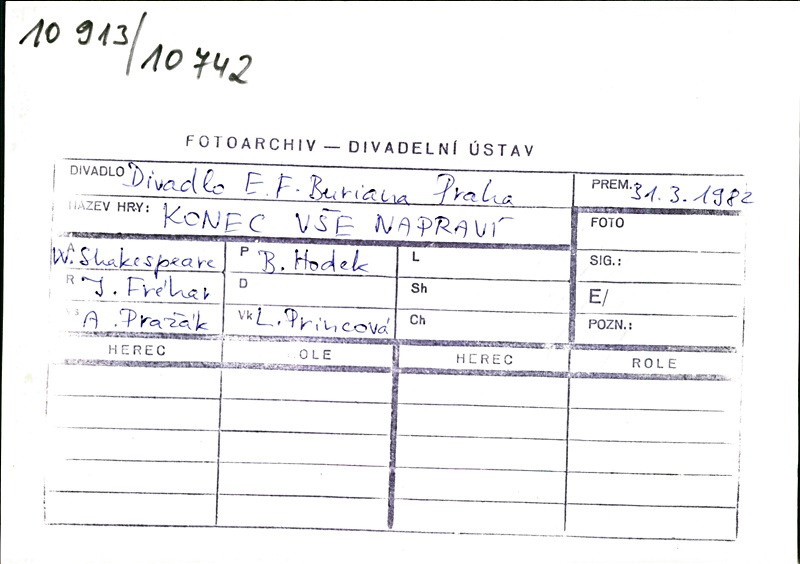 10 913/10 742
FOTOARCHIV — DIVADELNÍ ÚSTAV
DIVADLO Divadlo E. F. Buriana Praha PREM. 31. 3. 1982
NÁZEV HRY: KONEC VŠE NAPRAVÍ FOTO
A W. Shakespeare P B. Hodek L SIG.:
R J. Fréhar D Sh E/
Vs A. Pražák Vk L. Princová Ch POZN.:
HEREC ROLE HEREC ROLE